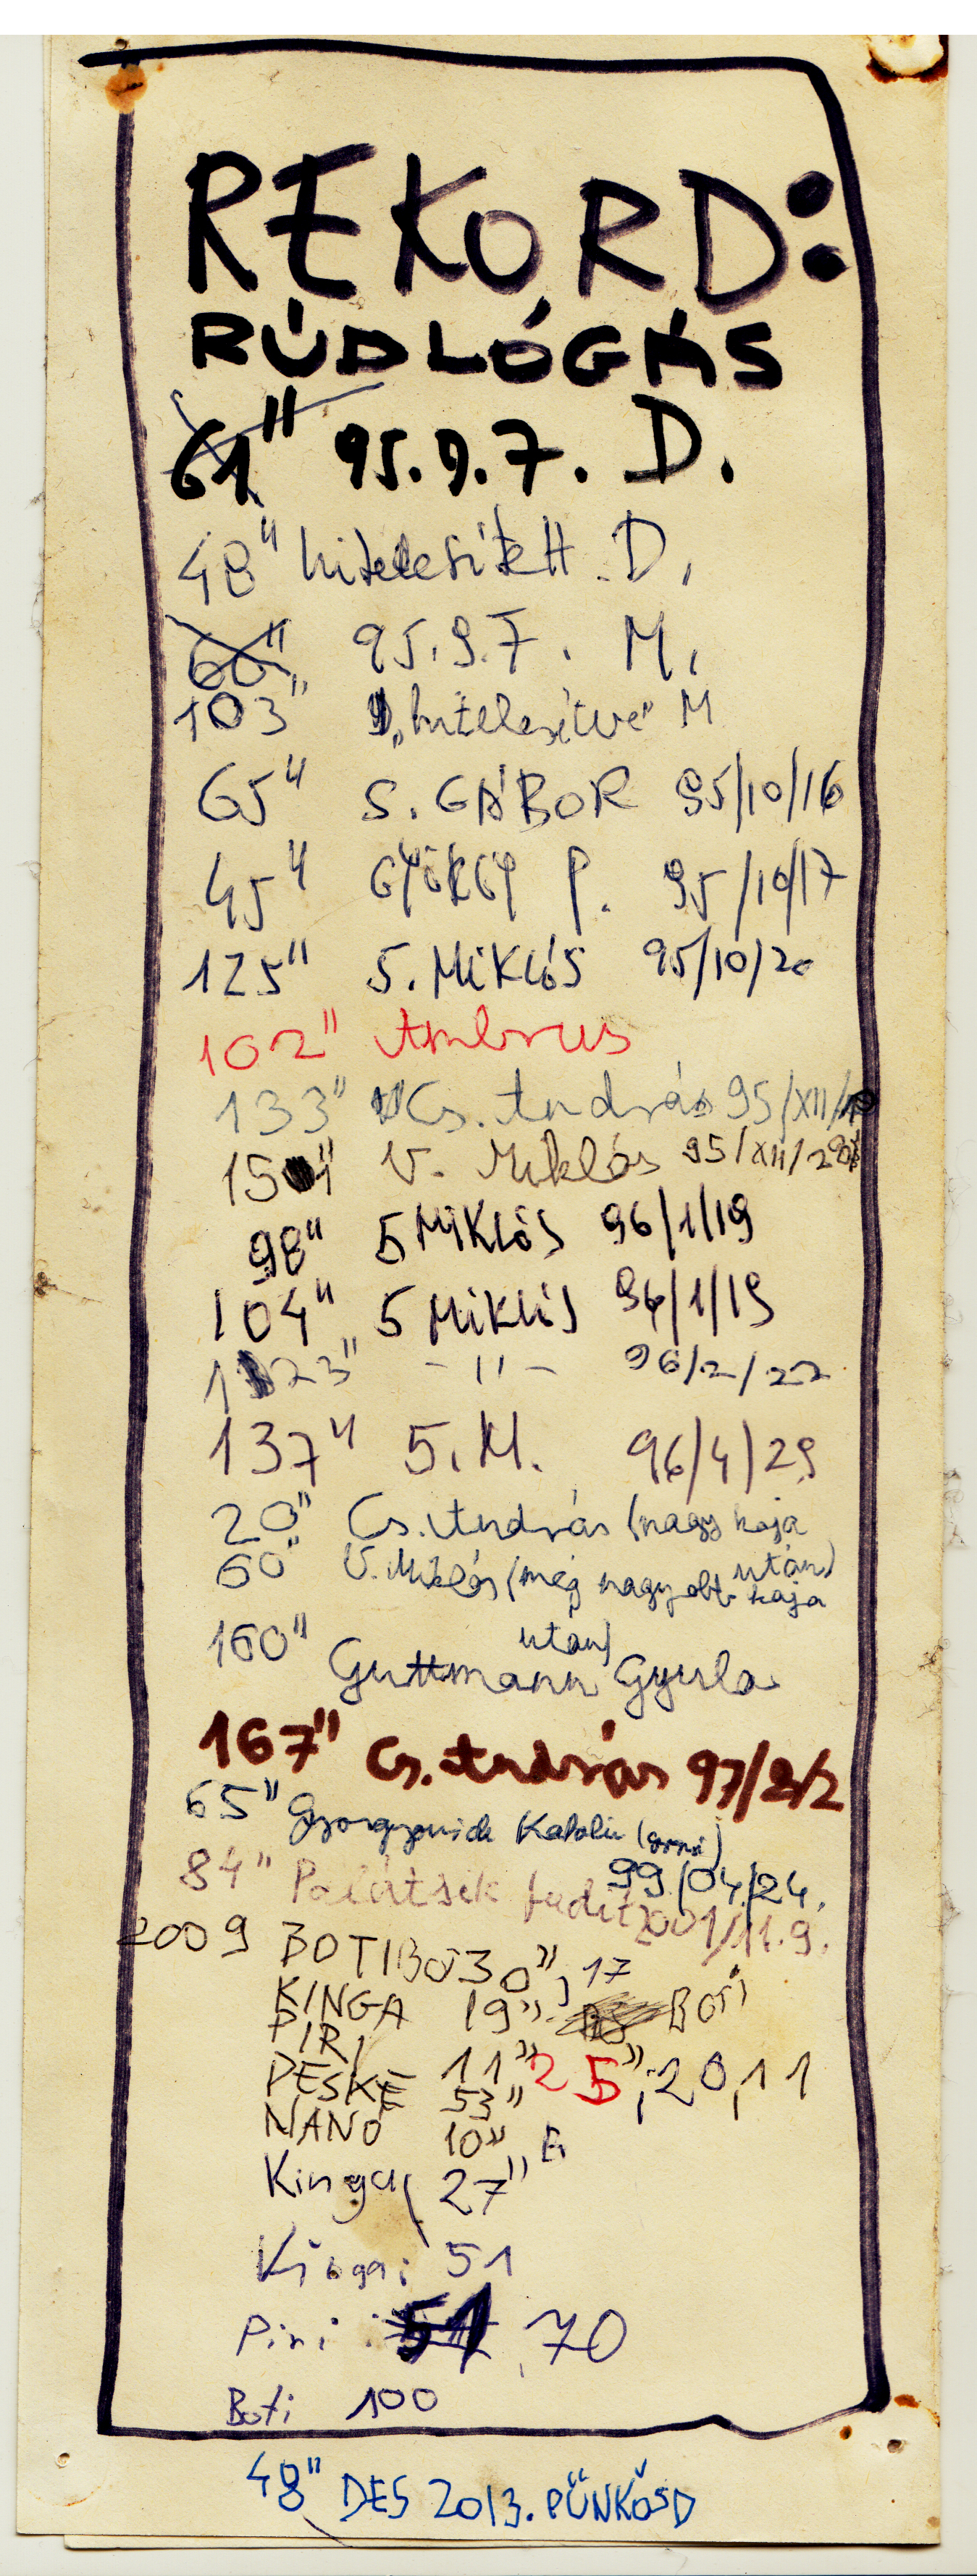 REKORD:
RÚDLÓGÁS
61" 95.9.7. D.
48" hitelesített D.
60" 95.9.7. M.
103" "hitelesítve" M
65" S. GÁBOR 95/10/16
45" P. 95/10/17
125" S. MIKLÓS 95/10/20
102" Ambrus
133" Cs. András 95/XII/
15 " V. Miklós 95/XII/
98" S MIKLÓS 96/1/19
104" S MIKLÓS 96/1/19
123" -"- 96/2/22
137" S. M. 96/4/29
20" Cs. András (nagy kaja
után)
60" V. Miklós (még nagyobb kaja
után)
160" Guttmann Gyula
167" Cs. András 97/2/2
65" Katalin
99/04/24.
84" Palátsik Judit 2001/11.9.
2009 BOTIBO 30", 17
KINGA 19" BOTI
PIRI 11" 25", 20, 11
PESKE 53"
NANÓ 10"
Kinga 27"
Kinga: 51
Piri: 51, 70
Boti 100
48" DES 2013. PÜNKÖSD